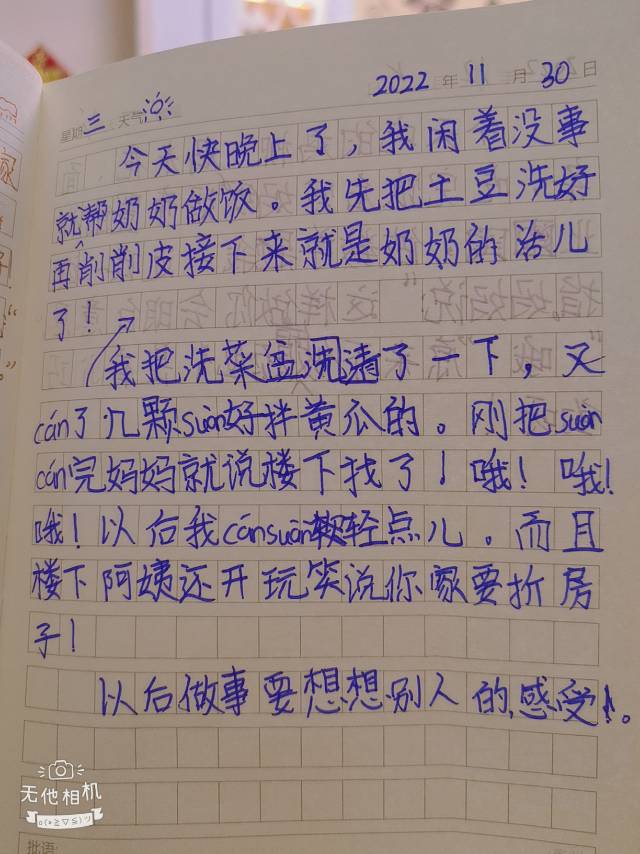 2022 年 11 月 30 日
星期 三 天气
今天快晚上了，我闲着没事
就帮奶奶做饭。我先把土豆洗好
再削削皮接下来就是奶奶的活儿
了！
我把洗菜盆洗清了一下，又
cán了几颗suàn好拌黄瓜的。刚把suàn
cán完妈妈就说楼下找了！哦！哦！
哦！以后我cánsuàn轻点儿。而且
楼下阿姨还开玩笑说你家要折房
子！
以后做事要想想别人的感受。
无他相机
批语: